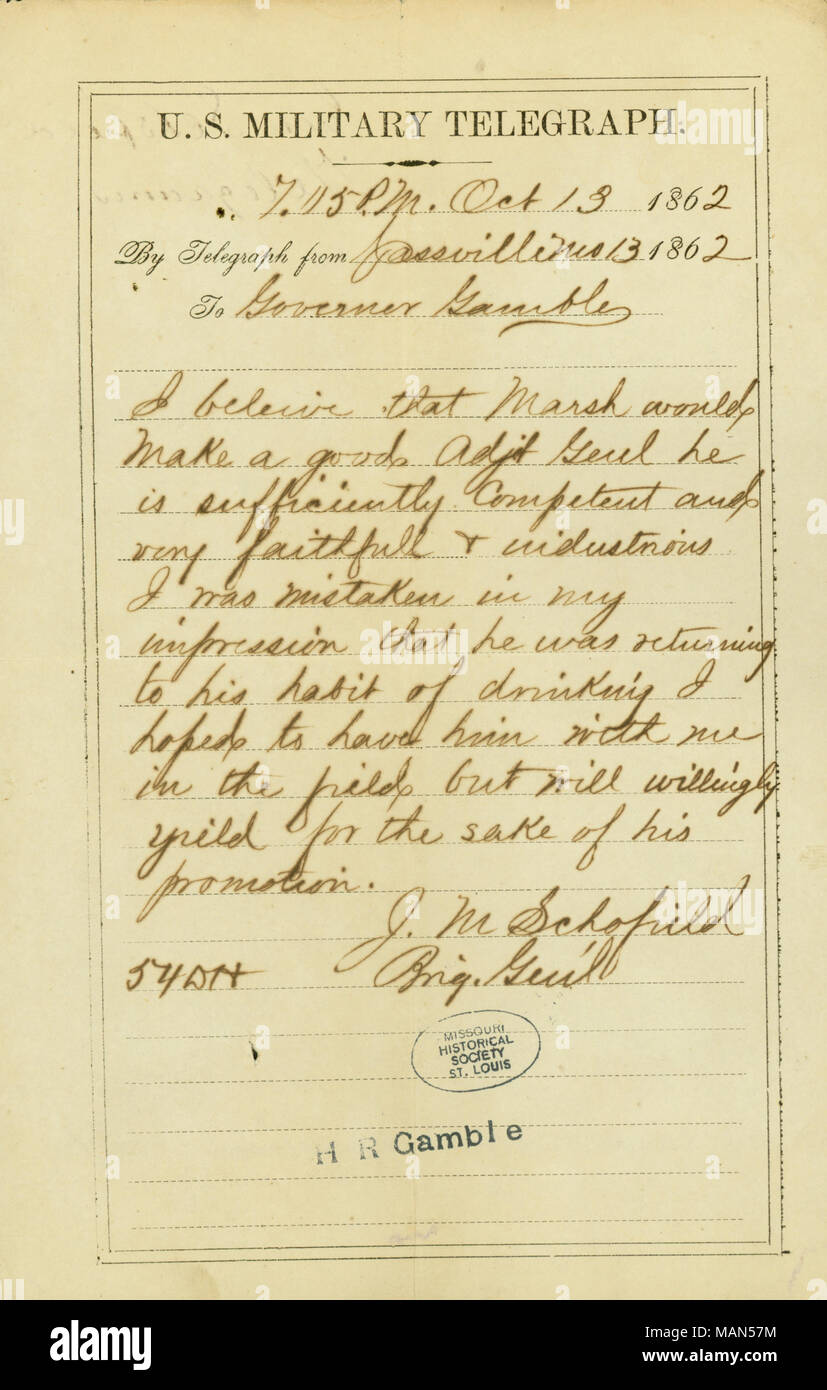 U. S. MILITARY TELEGRAPH.
7.115 P.M. Oct 13 1862
By Telegraph from Cassville Mo 13 1862
To Governer Gamble
I beleive that Marsh would
make a good Adjt Genl he
is sufficiently Competent and
very faithfull & industrious
I was mistaken in my
impression that he was returning
to his habit of drinking I
hoped to have him with me
in the field but will willingly
yeild for the sake of his
promotion.
J. M Schofield
54 DH Brig. Gen'l
MISSOURI
HISTORICAL
SOCIETY
ST. LOUIS
H R Gamble
alamy
alamy
alamy
alamy
Image ID: MAN57M
www.alamy.com